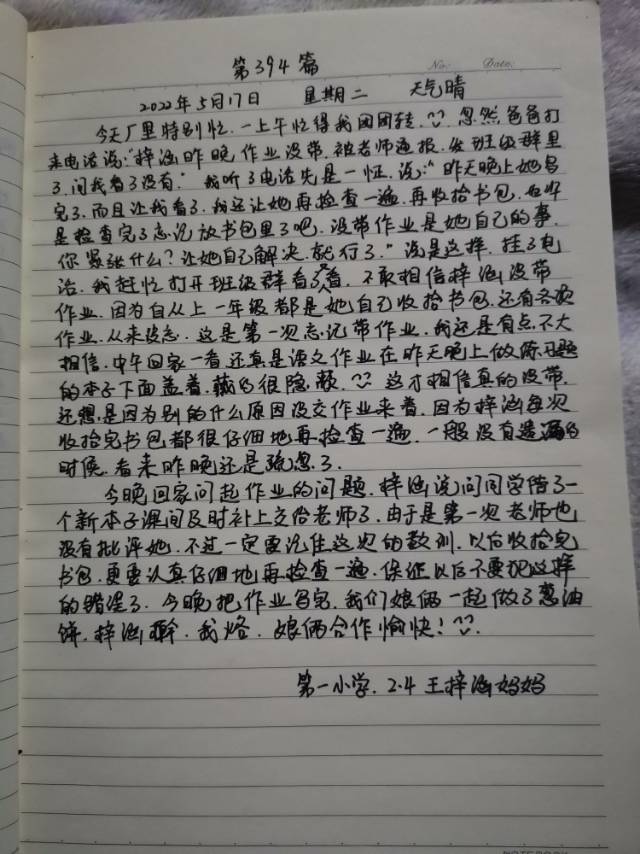 第394篇
No.
Date.
2022年5月17日 星期二 天气晴
今天厂里特别忙.一上午忙得我团团转.忽然爸爸打
来电话说:"梓涵昨晚作业没带.被老师通报.发班级群里
了.问我看了没有."我听了电话先是一怔.说:"昨天晚上她写
完了.而且让我看了.我还让她再检查一遍.再收拾书包.也许
是检查完了忘记放书包里了吧.没带作业是她自己的事.
你紧张什么?让她自己解决.就行了."说是这样.挂了电
话.我赶忙打开班级群看了看.不敢相信梓涵没带
作业.因为自从上一年级都是她自己收拾书包.还有各项
作业.从来没忘.这是第一次忘记带作业.我还是有点不大
相信.中午回家一看还真是语文作业在昨天晚上做练习题
的本子下面盖着.藏的很隐蔽.这才相信真的没带.
还想是因为别的什么原因没交作业来着.因为梓涵每次
收拾完书包都很仔细地再检查一遍.一般没有遗漏的
时候.看来昨晚还是疏忽了.
今晚回家问起作业的问题.梓涵说问同学借了一
个新本子课间及时补上交给老师了.由于是第一次老师也
没有批评她.不过一定要记住这次的教训.以后收拾完
书包.更要认真仔细地再检查一遍.保证以后不要犯这样
的错误了.今晚把作业写完.我们娘俩一起做了葱油
饼.梓涵擀.我烙.娘俩合作愉快!
第一小学.2.4 王梓涵妈妈